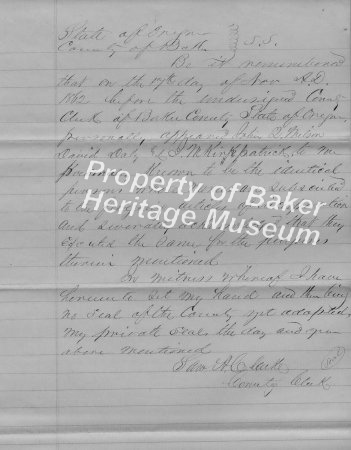 State of Oregon } S.S.
County of Baker }
Be it remembered
that on the 17th day of Nov A.D.
1862 before the undersigned County
Clerk of Baker County State of Oregon
personally appeared John Q. Wilson
David Daly & J. M. Kirkpatrick to me
known to be the identical
persons subscribed
to the articles
and severally that they
executed the same for the purposes
therein mentioned
In witness whereof I have
hereunto set my hand and there being
no seal of the County yet adopted
my private seal the day and year
above mentioned
Sam A. Clarke
County Clerk
Property of Baker
Heritage Museum